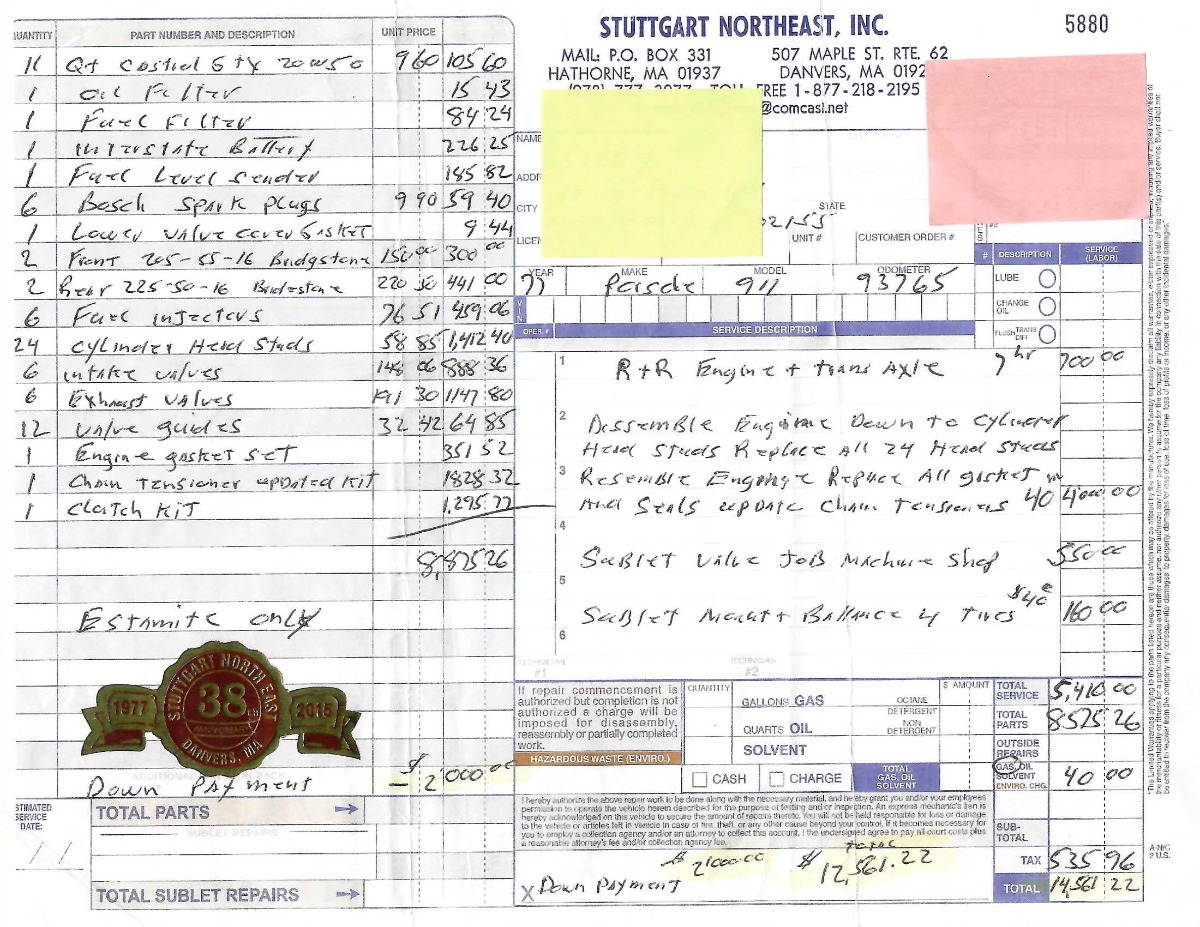 STUTTGART NORTHEAST, INC.
5880
MAIL: P.O. BOX 331
507 MAPLE ST. RTE. 62
HATHORNE, MA 01937
DANVERS, MA 0192
FREE 1-877-218-2195
@comcast.net
QUANTITY PART NUMBER AND DESCRIPTION UNIT PRICE
11 Qt Castrol GTX 20W50 9 60 105 60
1 Oil Filter 15 43
1 Fuel Filter 84 24
1 Interstate Battery 226 25
1 Fuel Level Sender 185 82
6 Bosch Spark Plugs 9 90 59 40
1 Lower valve cover Gasket 9 44
2 Front 205-55-16 Bridgstone 150 00 300 00
2 Rear 225-50-16 Bridestone 220 50 441 00
6 Fuel injectors 76 51 459 06
24 Cylinder Head Studs 58 85 1,412 40
6 intake valves 148 06 888 36
6 Exhaust valves 30 1147 80
12 Valve guides 32
1 Engine gasket set 351 52
1 Chain Tensioner updated Kit 1828 32
1 Clutch Kit 1,295 77
26
Estamite only
STUTTGART NORTH EAST
38th
ANNIVERSARY
DANVERS, MA
1977
2015
Down Payment - $ 2000 00
ESTIMATED SERVICE DATE:
TOTAL PARTS
SUBLET REPAIRS
TOTAL SUBLET REPAIRS
NAME
ADDR
CITY
STATE
02155
LICEN
UNIT #
CUSTOMER ORDER #
YEAR MAKE MODEL ODOMETER
77 Porsche 911 93765
VIN
OPER. # SERVICE DESCRIPTION
# DESCRIPTION SERVICE (LABOR)
LUBE
CHANGE OIL
FLUSH TRANS DIFF
1 R+R Engine + trans Axle 7 hr 700 00
2 Dissemble Engine Down to Cylinder
Head Studs Replace All 24 Head Studs
3 Resemble Engine Replace All gasket
And Seals update Chain Tensioners 40 4000.00
4
Sublet Valve Job Machine Shop 550 00
5
$40
Sublet Mount + Ballance 4 Tires 160 00
6
TECHNICIAN #1
TECHNICIAN #2
If repair commencement is
authorized but completion is not
authorized a charge will be
imposed for disassembly,
reassembly or partially completed
work.
HAZARDOUS WASTE (ENVIRO.)
QUANTITY
$ AMOUNT
GALLONS GAS OCTANE
DETERGENT
QUARTS OIL NON DETERGENT
SOLVENT
CASH CHARGE
TOTAL GAS, OIL SOLVENT
TOTAL SERVICE 5,410.00
TOTAL PARTS 8575.26
OUTSIDE REPAIRS
GAS, OIL SOLVENT ENVIRO. CHG. 40 00
SUB-TOTAL
TAX 535 96
TOTAL 14,561 22
I hereby authorize the above repair work to be done along with the necessary material, and hereby grant you and/or your employees
permission to operate the vehicle herein described for the purpose of testing and/or inspection. An express mechanic's lien is
hereby acknowledged on this vehicle to secure the amount of repairs thereto. You will not be held responsible for loss or damage
to the vehicle or articles left in vehicle in case of fire, theft, or any other cause beyond your control. If it becomes necessary for
you to employ a collection agency and/or an attorney to collect this account, I the undersigned agree to pay all court costs plus
a reasonable attorney's fee and/or collection agency fee.
X Down Payment $ 2000.00 TOTAL $ 12,561.22
A-N/C
2 U.S.